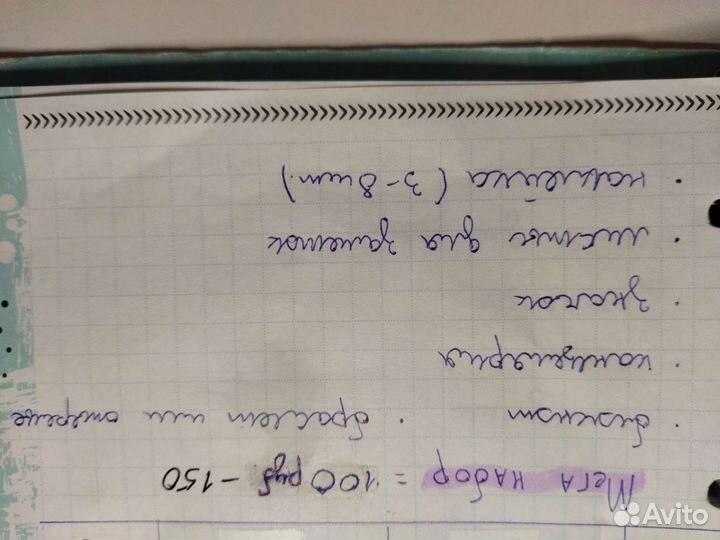 Мега набор = 100 руб. - 150
• блокнот • браслет или ожерелье
• канцелярия
• значок
• листы для заметок
• наклейка (3-8 шт.)
Avito